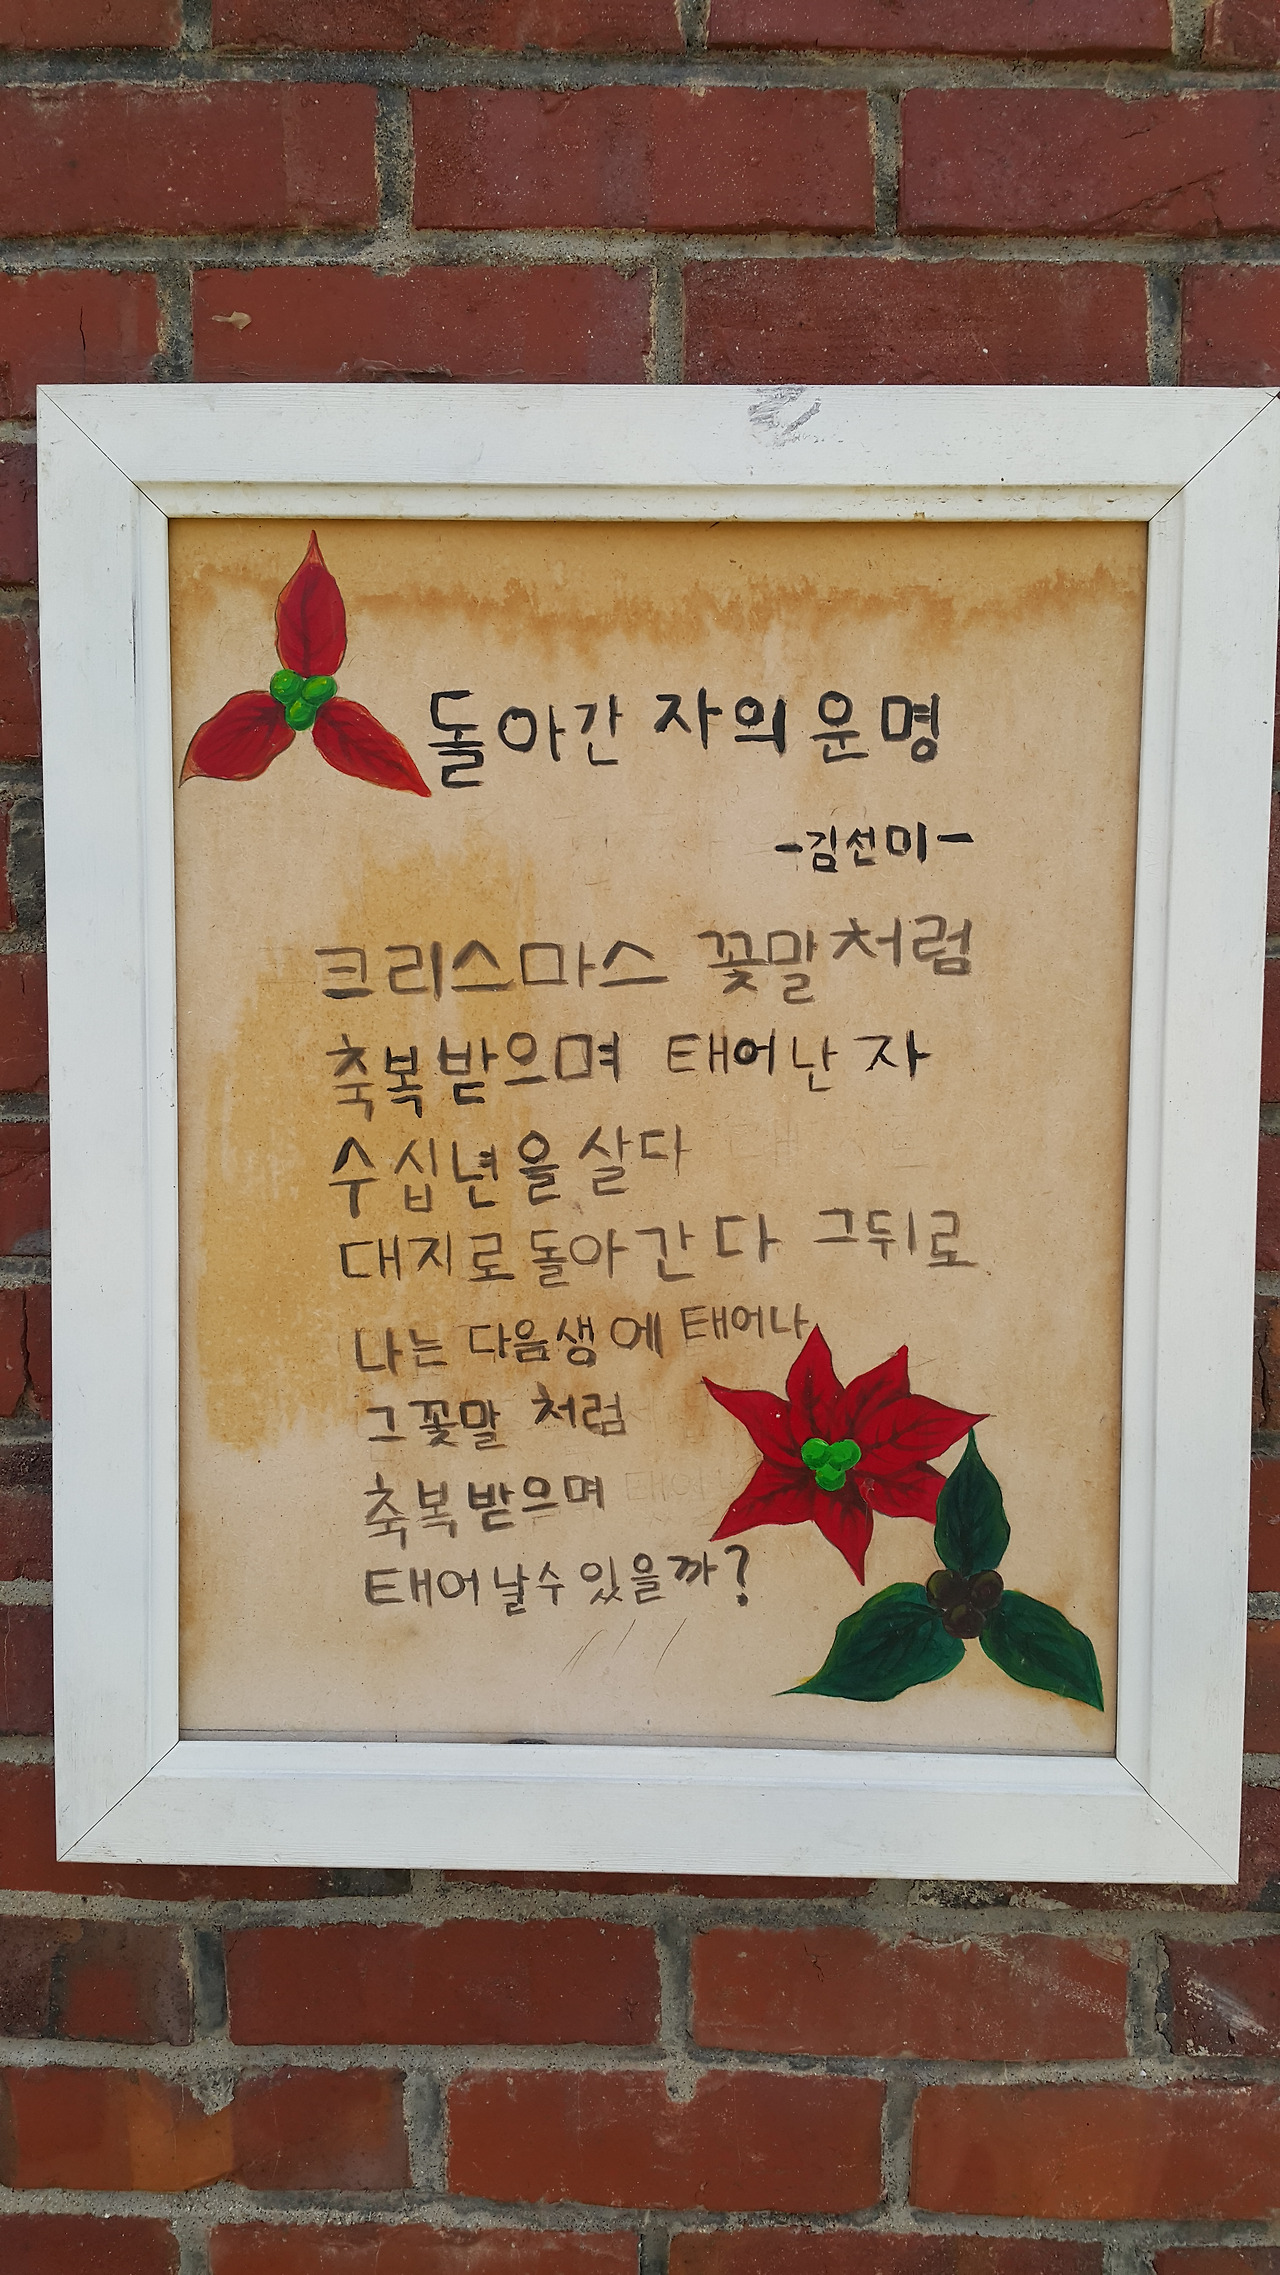 돌아간 자의 운명
-김선미-
크리스마스 꽃말처럼
축복받으며 태어난 자
수십년을 살다
대지로 돌아간다 그뒤로
나는 다음생에 태어나
그꽃말 처럼
축복받으며
태어날수 있을까?